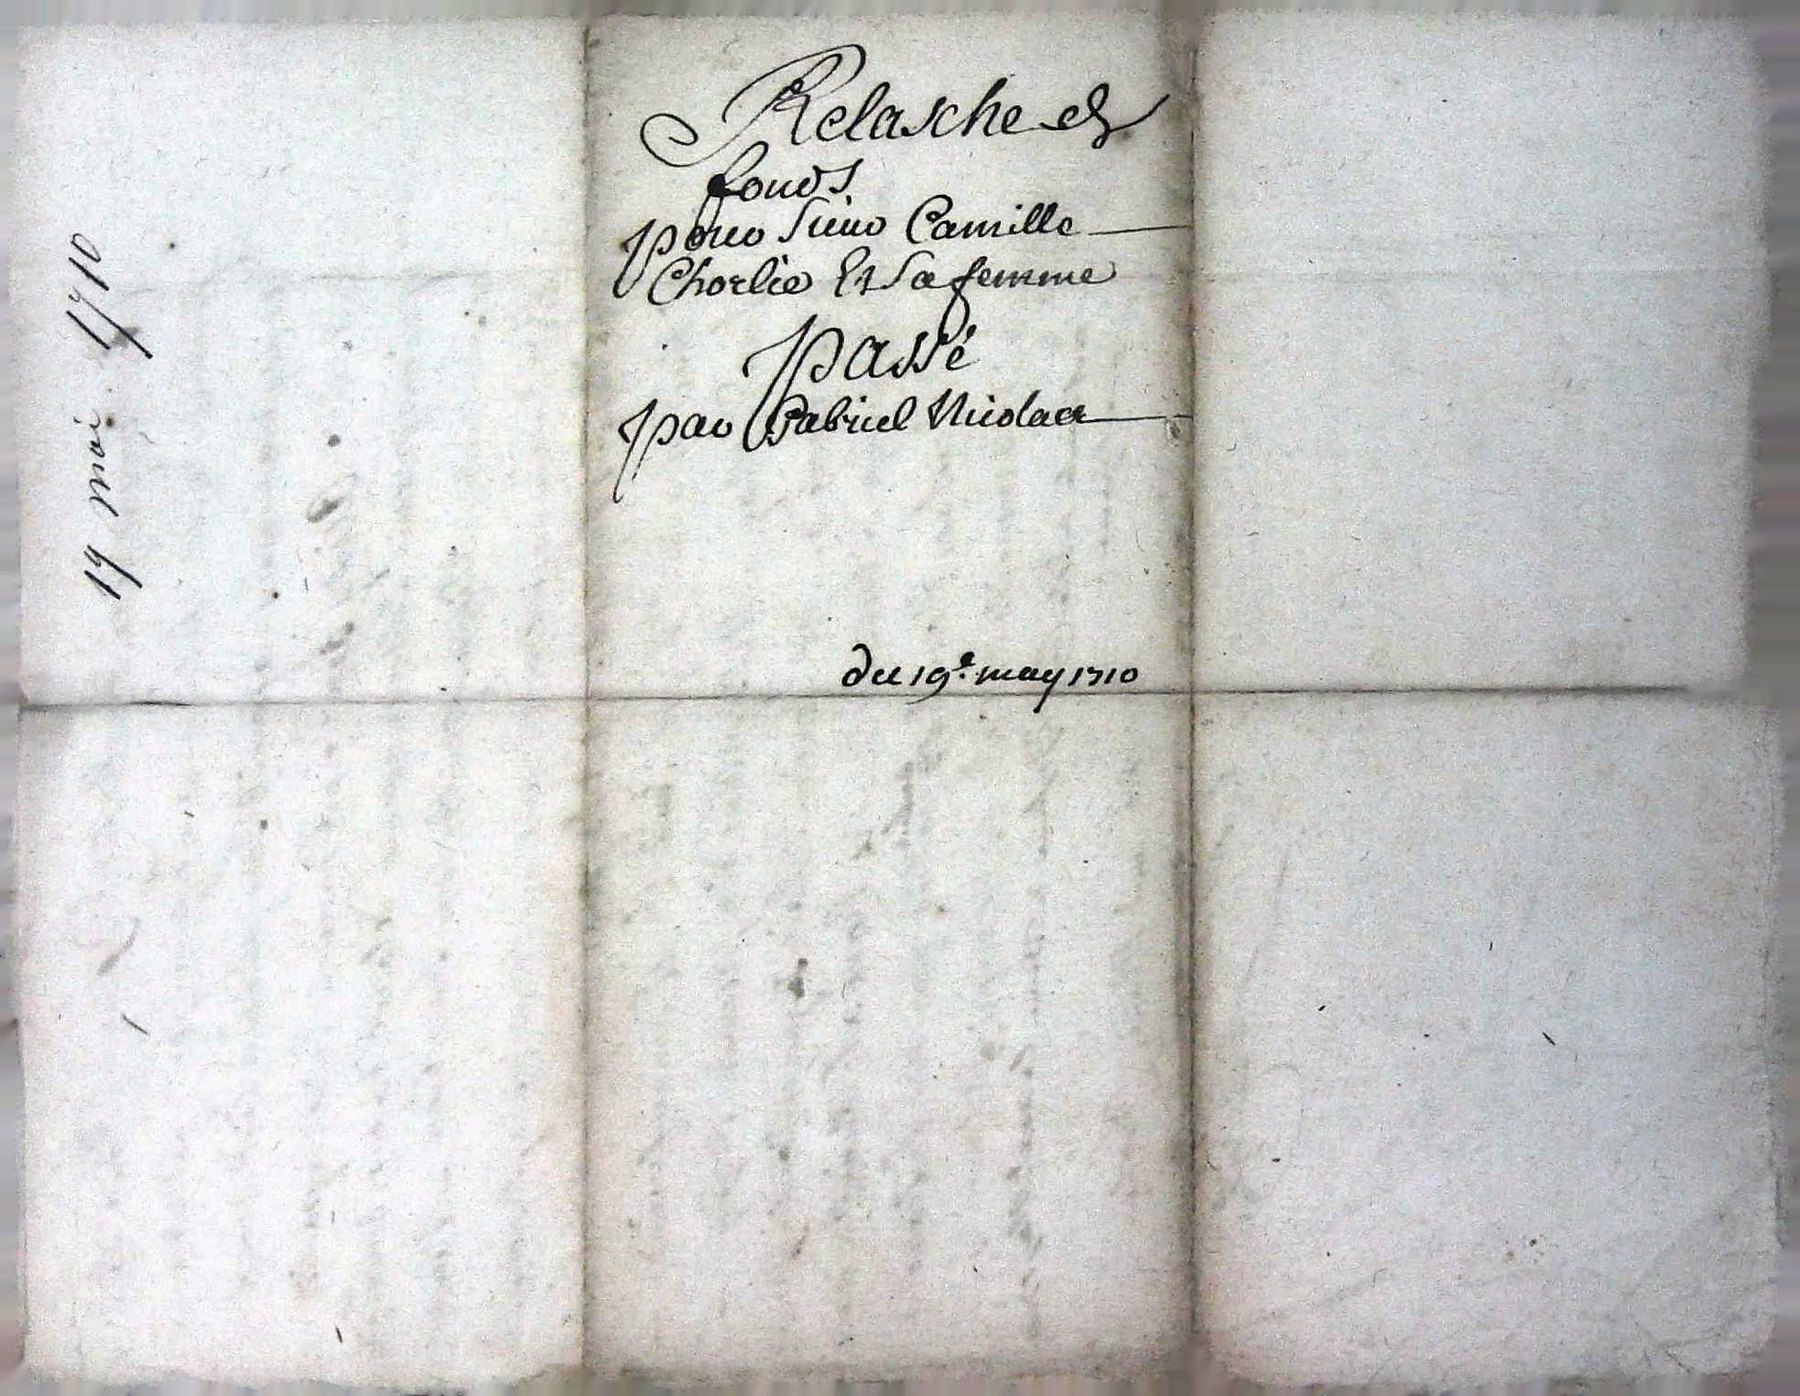 Relasche de
fonds
pour Sieur Camille
Chorlie Et sa femme
passé
par Gabriel Nicolas
du 19e. may 1710
19 mai 1710